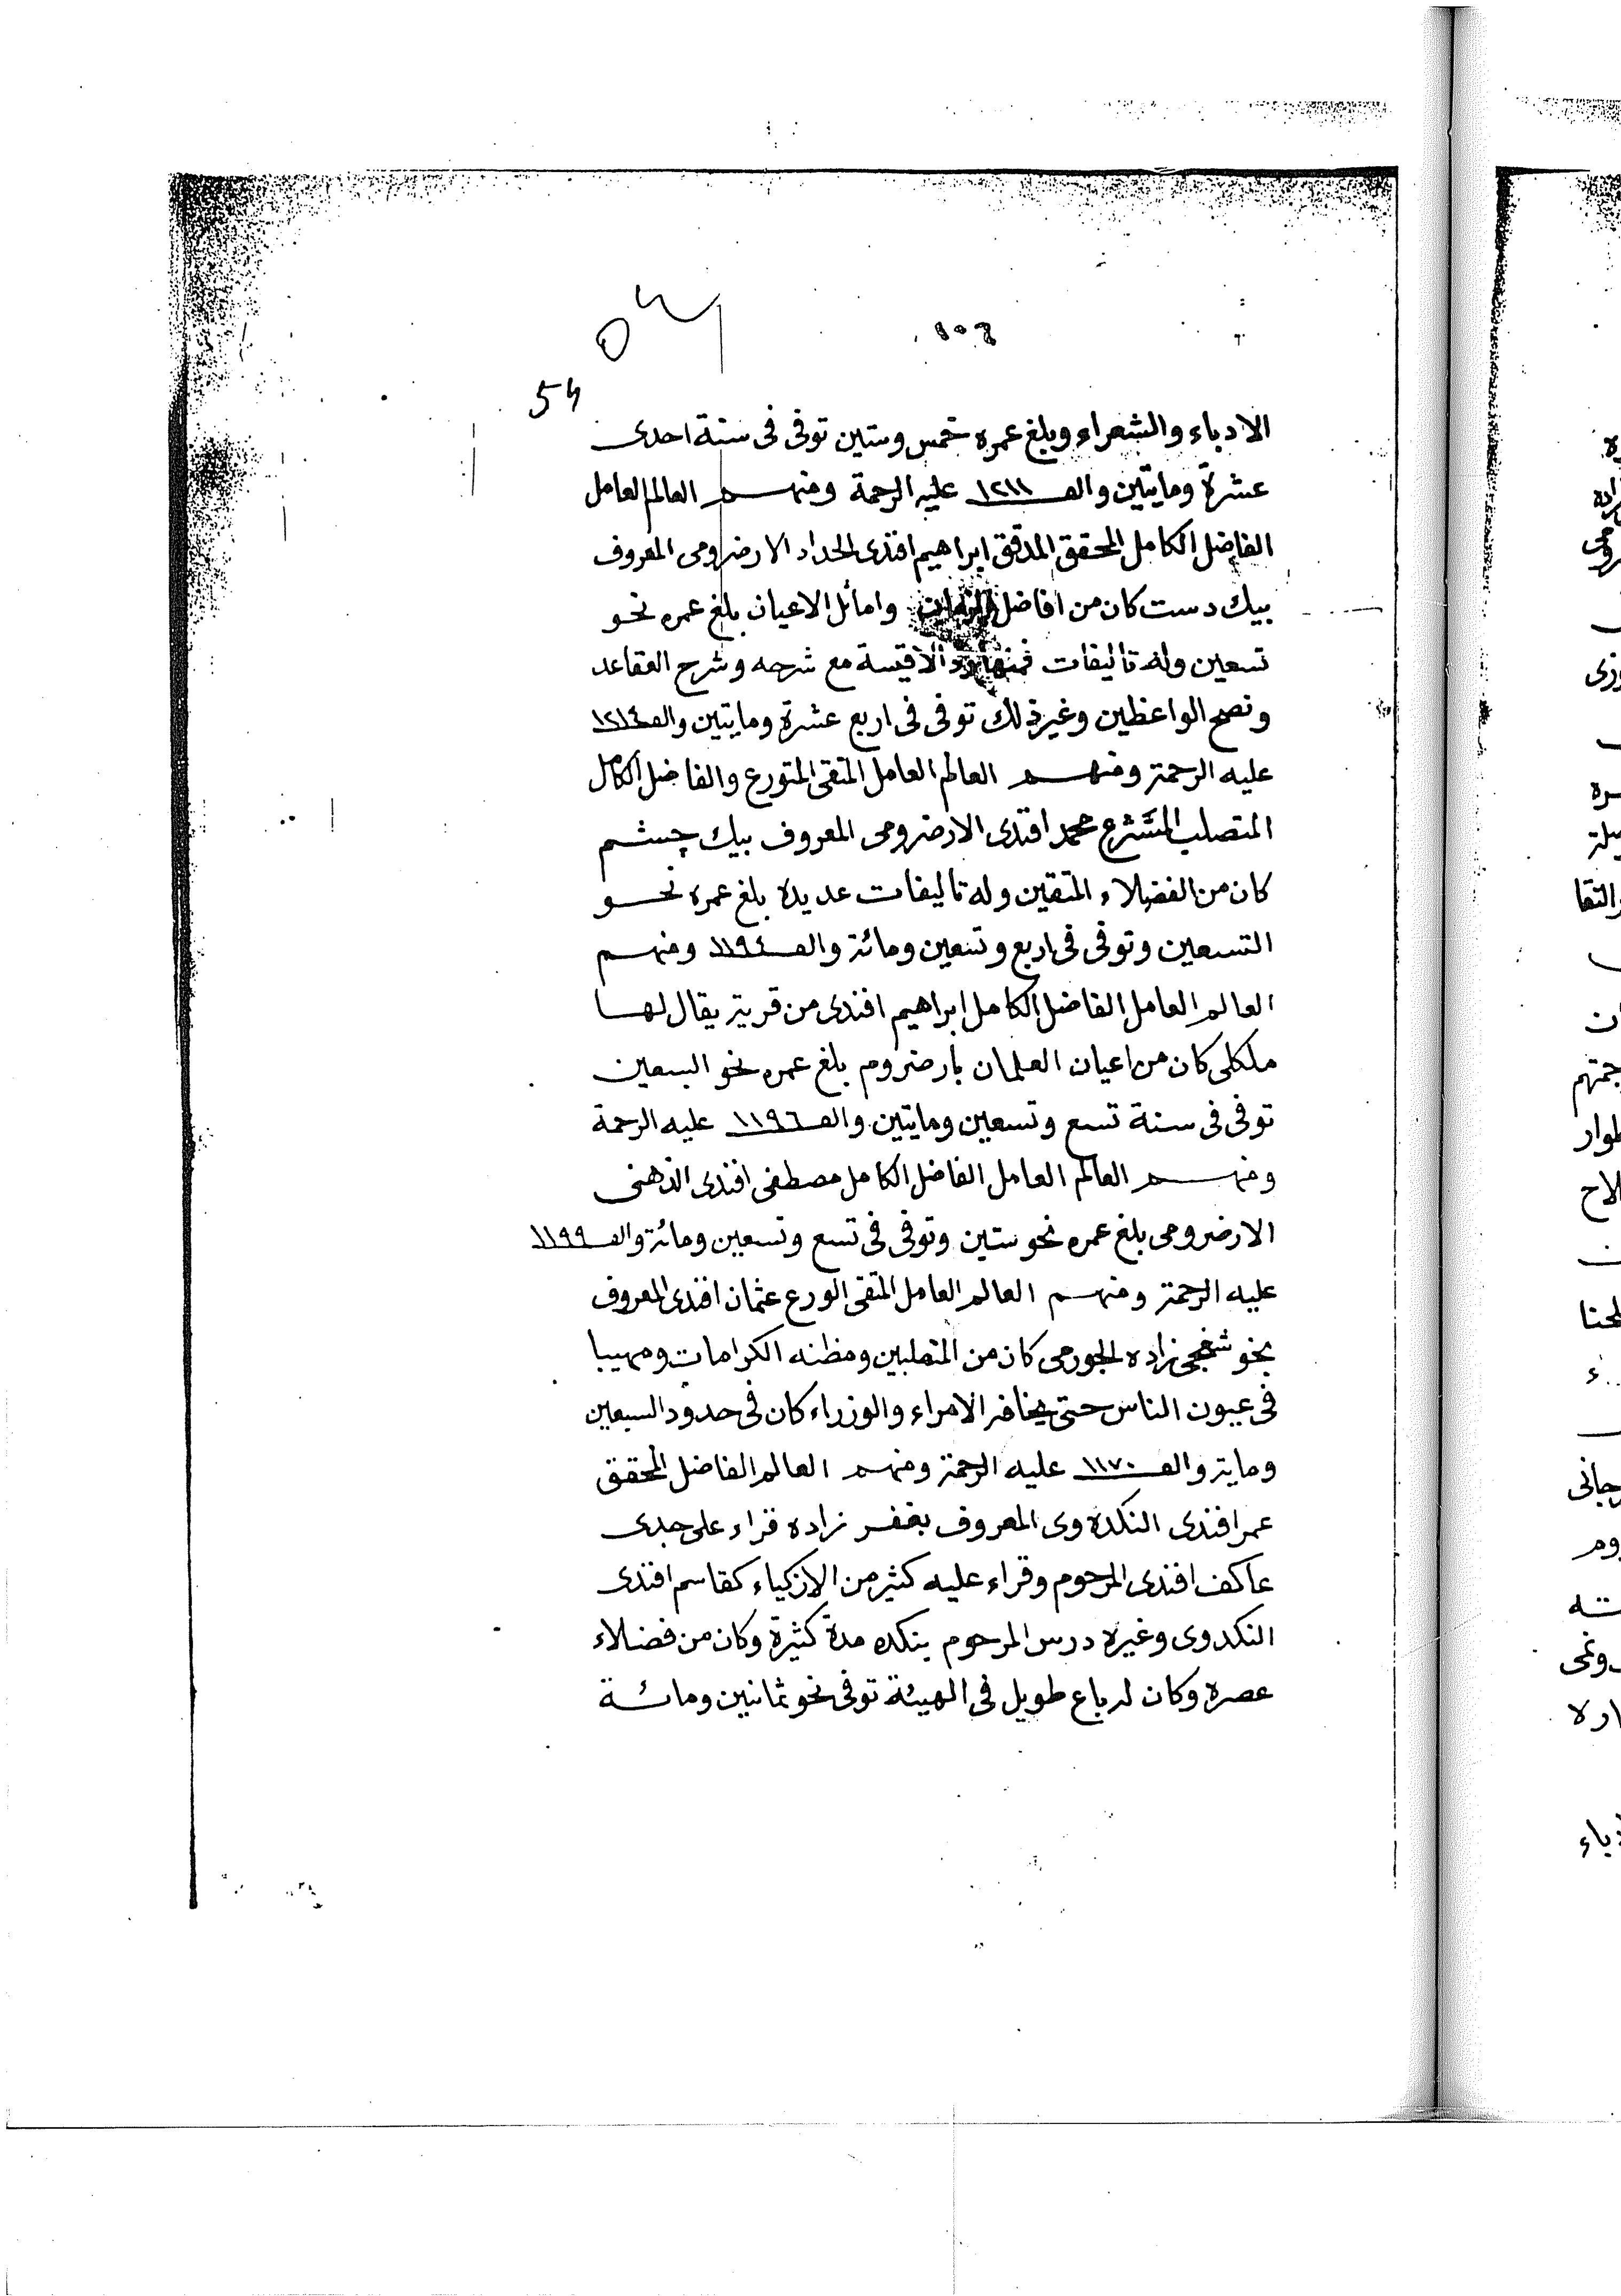 54
الادباء والشعراء وبلغ عمره خمس وستين توفى فى سنة احدى
عشرة ومايتين والف ١٢١١ عليه الرحمة ومنهم العالم العامل
الفاضل الكامل المحقق المدقق ابراهيم افندى الحداد الارضرومى المعروف
بيك دست كان من افاضل الزمان واماثل الاعيان بلغ عمره نحو
تسعين وله تاليفات فمنها الاقيسة مع شرحه وشرح العقاعد
ونصح الواعظين وغير ذلك توفى فى اربع عشرة ومايتين والف ١٢١٤
عليه الرحمة ومنهم العالم العامل المتقى المتورع والفاضل الكامل
المتصلب المتشرع محمد افندى الارضرومى المعروف بيك چشم
كان من الفضلاء المتقين وله تاليفات عديدة بلغ عمره نحو
التسعين وتوفى فى اربع وتسعين ومائة والف ١١٩٤ ومنهم
العالم العامل الفاضل الكامل ابراهيم افندى من قرية يقال لها
ملكلى كان من اعيان العلمان بارضروم بلغ عمره نحو السبعين
توفى فى سنة تسع وتسعين ومايتين والف ١١٩٦ عليه الرحمة
ومنهم العالم العامل الفاضل الكامل مصطفى افندى الذهنى
الارضرومى بلغ عمره نحو ستين وتوفى فى تسع وتسعين ومائة والف ١١٩٩
عليه الرحمة ومنهم العالم العامل المتقى الورع عثمان افندى المعروف
زاده الجورمى كان من المتصلبين ومظنه الكرامات ومهيبا
فى عيون الناس حتى يخافه الامراء والوزراء كان فى حدود السبعين
وماية والف ١١٧٠ عليه الرحمة ومنهم العالم الفاضل المحقق
عمر افندى النكدوى المعروف زاده قراء على جدى
عاكف افندى المرحوم وقراء عليه كثير من الازكياء كقاسم افندى
النكدوى وغيره درس المرحوم بنكده مدة كثيرة وكان من فضلاء
عصره وكان له باع طويل فى الهيئة توفى نحو ثمانين ومائة